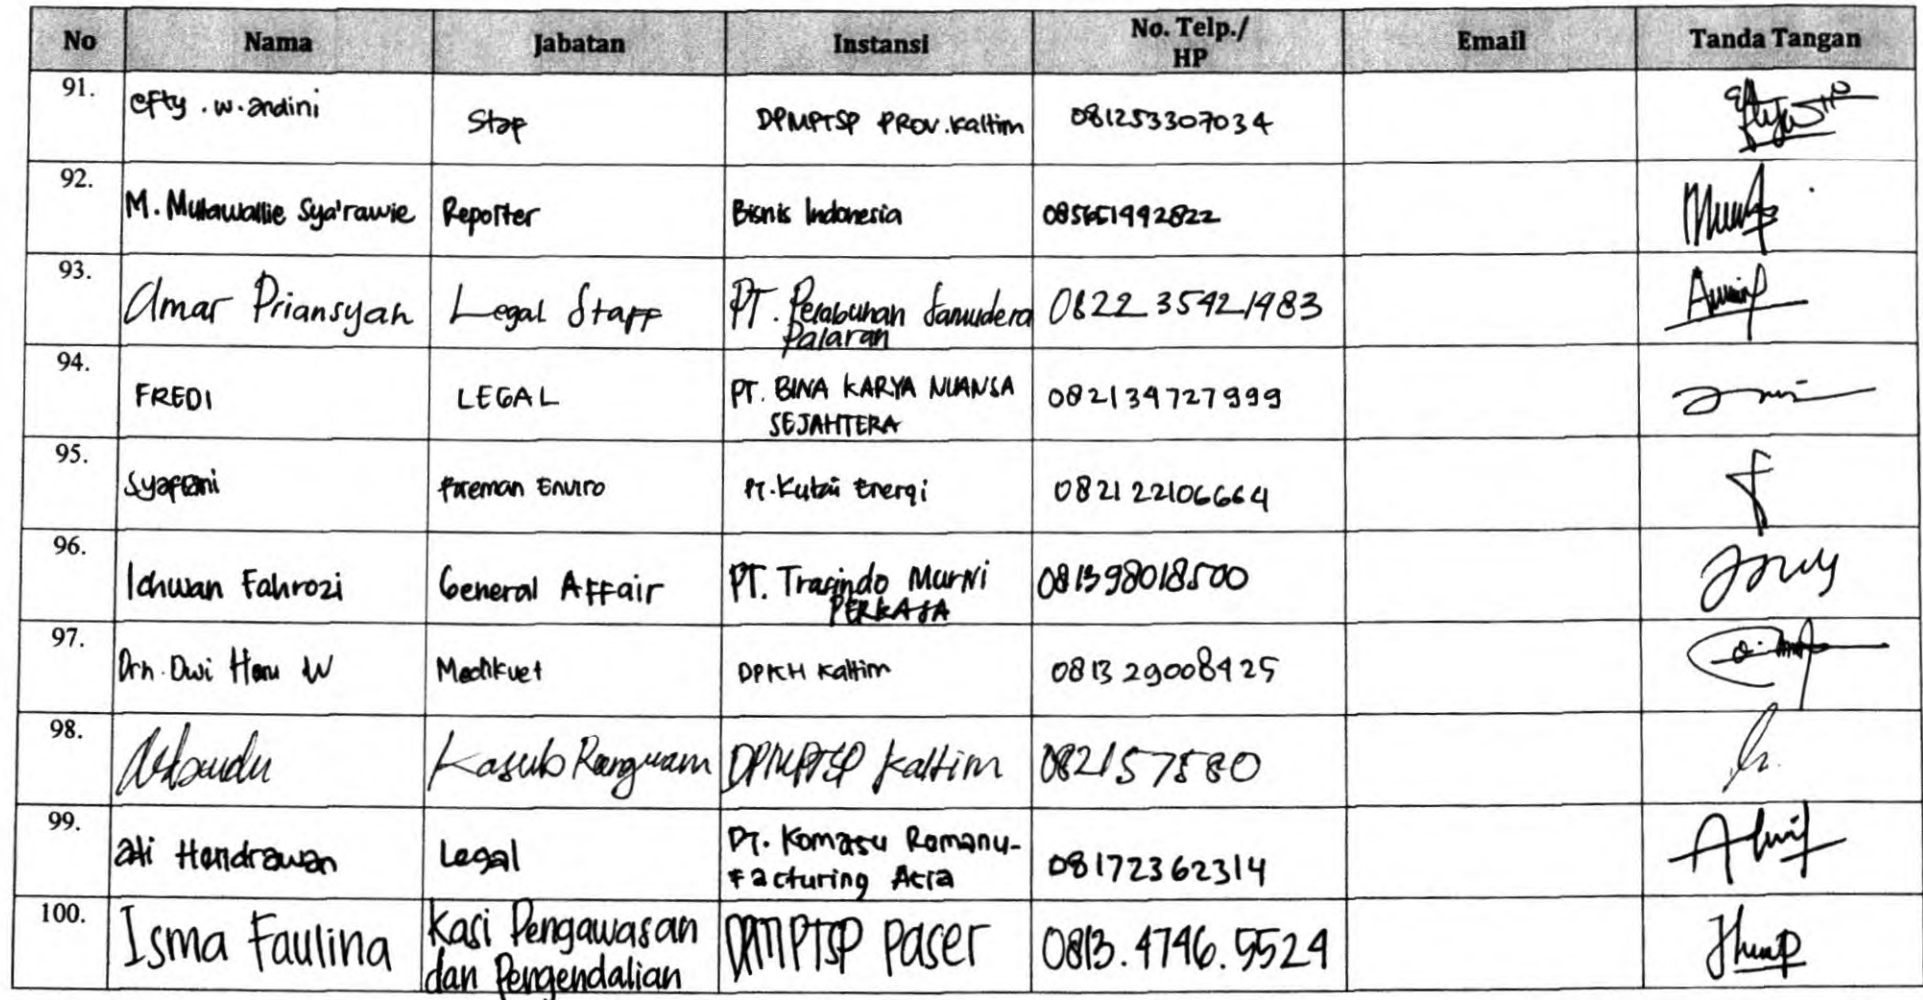 No Nama Jabatan Instansi No. Telp./ HP Email Tanda Tangan
91. efty . w. andini Stap DPMPTSP PROV. Kaltim 081253307034
92. M. Mutawallie Sya'rawie Reporter Bisnis Indonesia 085651992822
93. Amar Priansyah Legal Staff PT. Pelabuhan Samudera 0822 35421483
Palaran
94. FREDI LEGAL PT. BINA KARYA NUANSA 082134727999
SEJAHTERA
95. Foreman Enviro PT. Kutai Energi 082122106664
96. Ichwan Fahrozi General Affair PT. Trasindo Murni 081398018500
PERKASA
97. Drh. Dwi Heru W Medikvet DPKH Kaltim 0813 29008425
98. Kasub DPMPTSP Kaltim 082157580
99. Adi Hendrawan Legal PT. Komatsu Remanu- 08172362314
facturing Asia
100. Isma Faulina Kasi Pengawasan DPMPTSP Paser 0813.4746.5524
dan Pengendalian